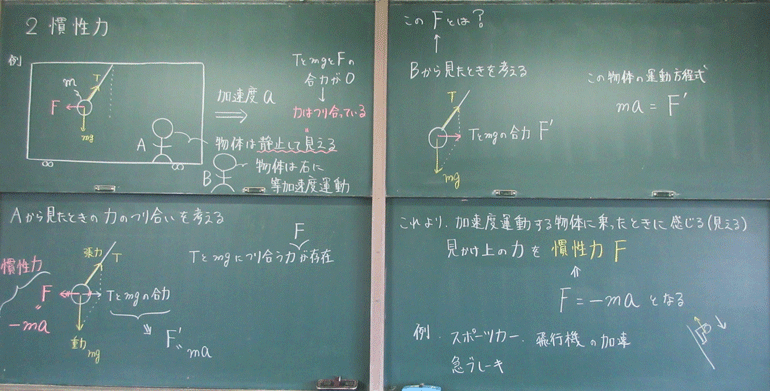 2 慣性力
例
m
T
F
mg
加速度 a
TとmgとFの
合力が0
↓
力はつり合っている
A
物体は静止して見える
B
物体は右に
等加速度運動
このFとは?
↑
Bから見たときを考える
T
Tとmgの合力 F'
mg
この物体の運動方程式
ma = F'
Aから見たときの力のつり合いを考える
F
Tとmgにつり合う力が存在
張力
T
慣性力
F
"
-ma
Tとmgの合力
重力 mg
F'
"
ma
これより、加速度運動する物体に乗ったときに感じる(見える)
見かけ上の力を 慣性力 F
⇑
F = -ma となる
例. スポーツカー、飛行機の加速
急ブレーキ